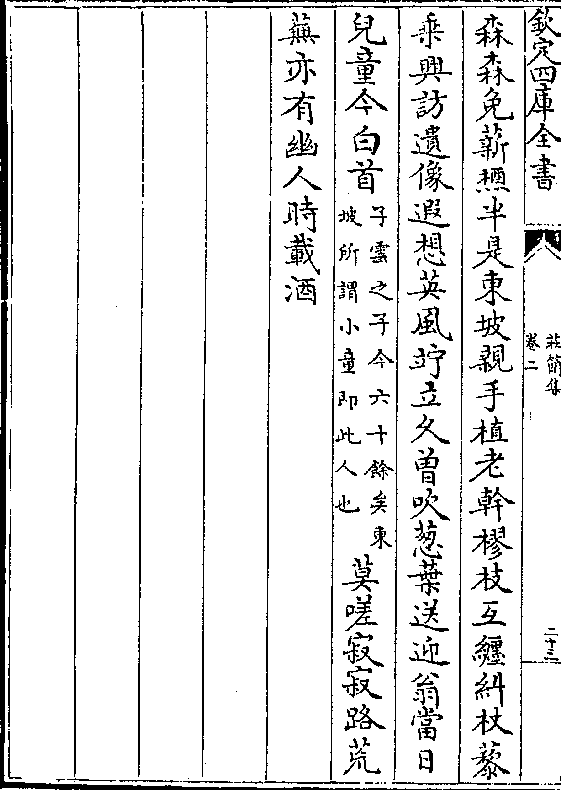 欽定四庫全書
莊簡集
卷二
二十三
森森免薪槱半是東坡親手植老幹樛枝互纏糾杖藜
乗興訪遺像遐想英風竚立久曾吹葱葉送迎翁當日
兒童今白首
子雲之子今六十餘矣東
坡所謂小童即此人也
莫嗟寂寂路荒
蕪亦有幽人時載酒